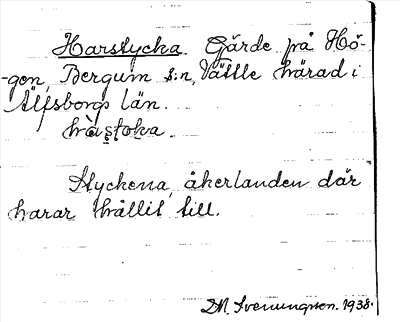 Harstycka. Gärde på Hö-
-gen, Bergum s:n, Vättle härad i
Älfsborgs län.

Styckena, åkerlanden där
harar hållit till.
D.M. Svenungsson. 1938.